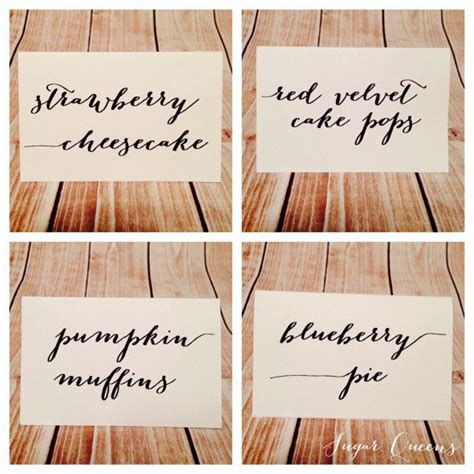 strawberry
cheesecake
red velvet
cake pops
pumpkin
muffins
blueberry
pie
Sugar Queens